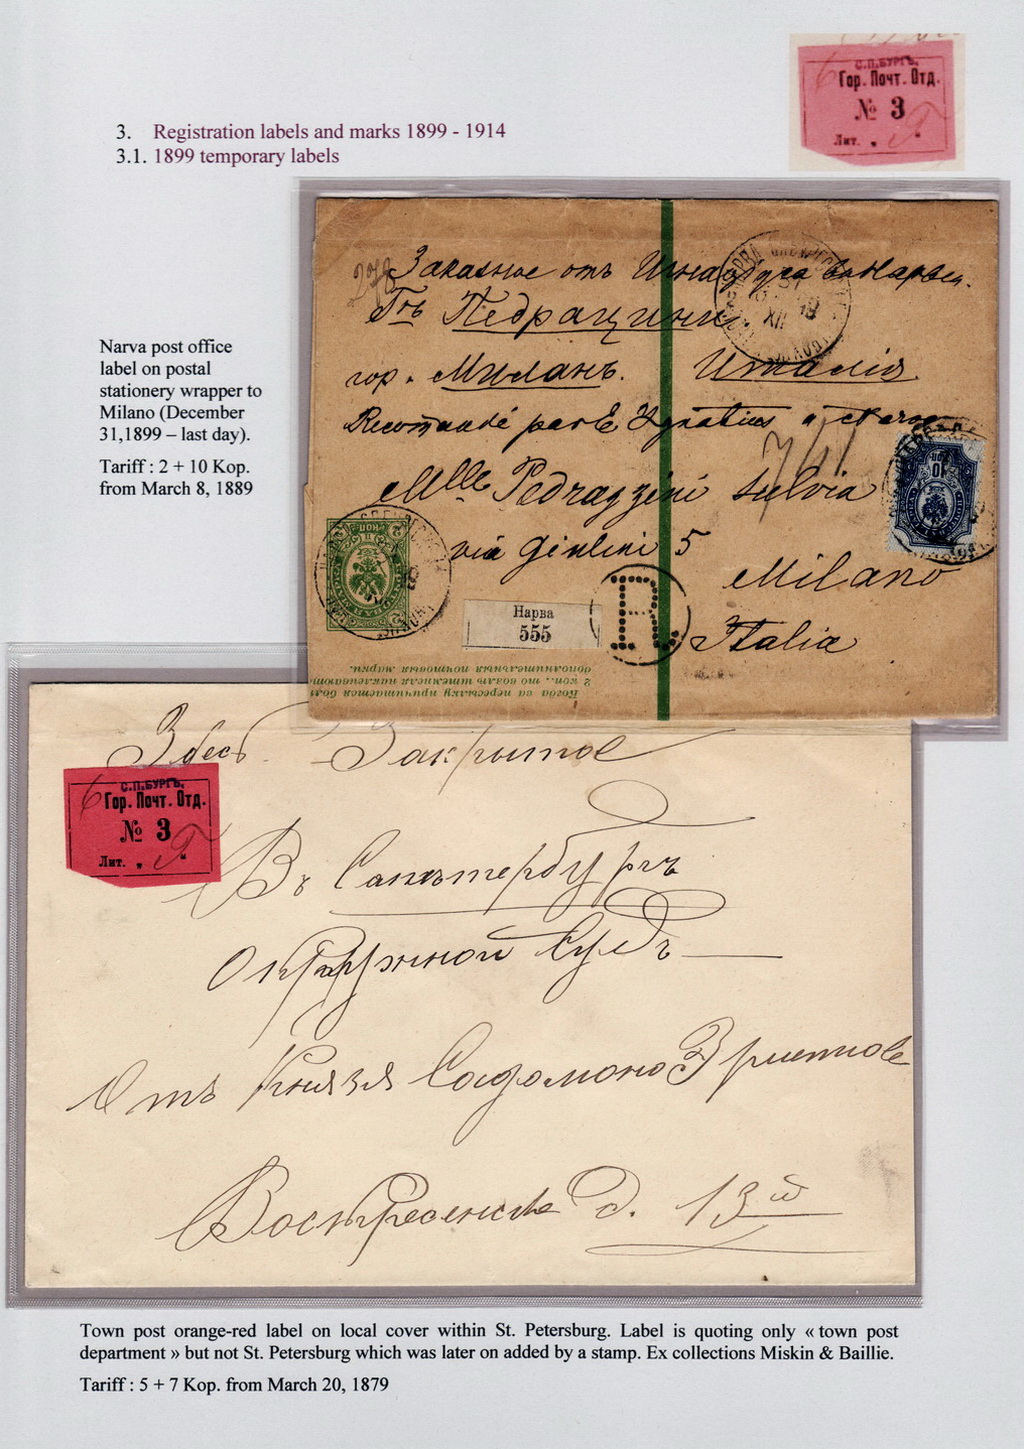 3. Registration labels and marks 1899 - 1914
3.1. 1899 temporary labels
С.П.БУРГЪ.
Гор. Почт. Отд.
№ 3
Лит. „ Г “
Narva post office
label on postal
stationery wrapper to
Milano (December
31,1899 – last day).
Tariff : 2 + 10 Kop.
from March 8, 1889
278
Заказное отъ
Гнъ Педрацини
гор. Миланъ. Италія.
Recommandé par E Ignatius a Narva
Mlle Pedrazzini Sulvia
via Giulini 5
Milano
Italia
Нарва
555
R.
Когда за пересылку причитается болѣе
2 коп., то возлѣ штемпеля наклеиваются
дополнительныя почтовыя марки.
Здесь Закрытое
С.П.БУРГЪ.
Гор. Почт. Отд.
№ 3
Лит. „ Г “
Въ
Окружной Судъ
Отъ Князя
д. 13й
Town post orange-red label on local cover within St. Petersburg. Label is quoting only « town post
department » but not St. Petersburg which was later on added by a stamp. Ex collections Miskin & Baillie.
Tariff : 5 + 7 Kop. from March 20, 1879